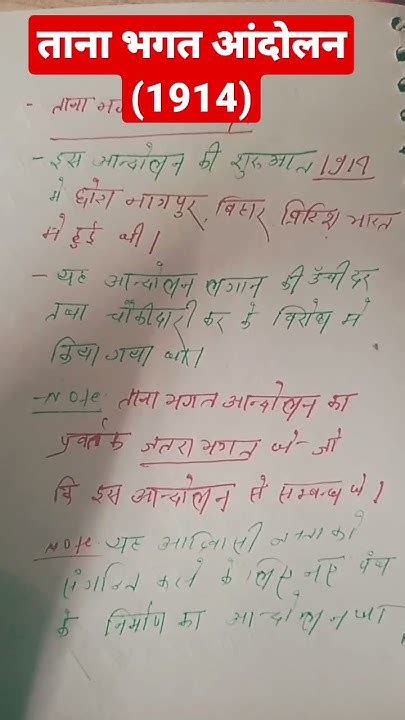 ताना भगत आंदोलन
(1914)
- ताना भ
- इस आन्दोलन की शुरुआत 1914
मे छोटा नागपुर, बिहार ब्रिटिश भारत
मे हुई थी।
- यह आन्दोलन लगान की ऊँची दर
तथा चौकीदारी कर के विरोध मे
किया गया था।
- Note: ताना भगत आन्दोलन का
प्रवर्तक जतरा भगत थे- जो
कि इस आन्दोलन से सम्बन्ध थे।
Note: यह आदिवासी जनता को
संगठित करने के लिए नए पंथ
के निर्माण का आन्दोलन था